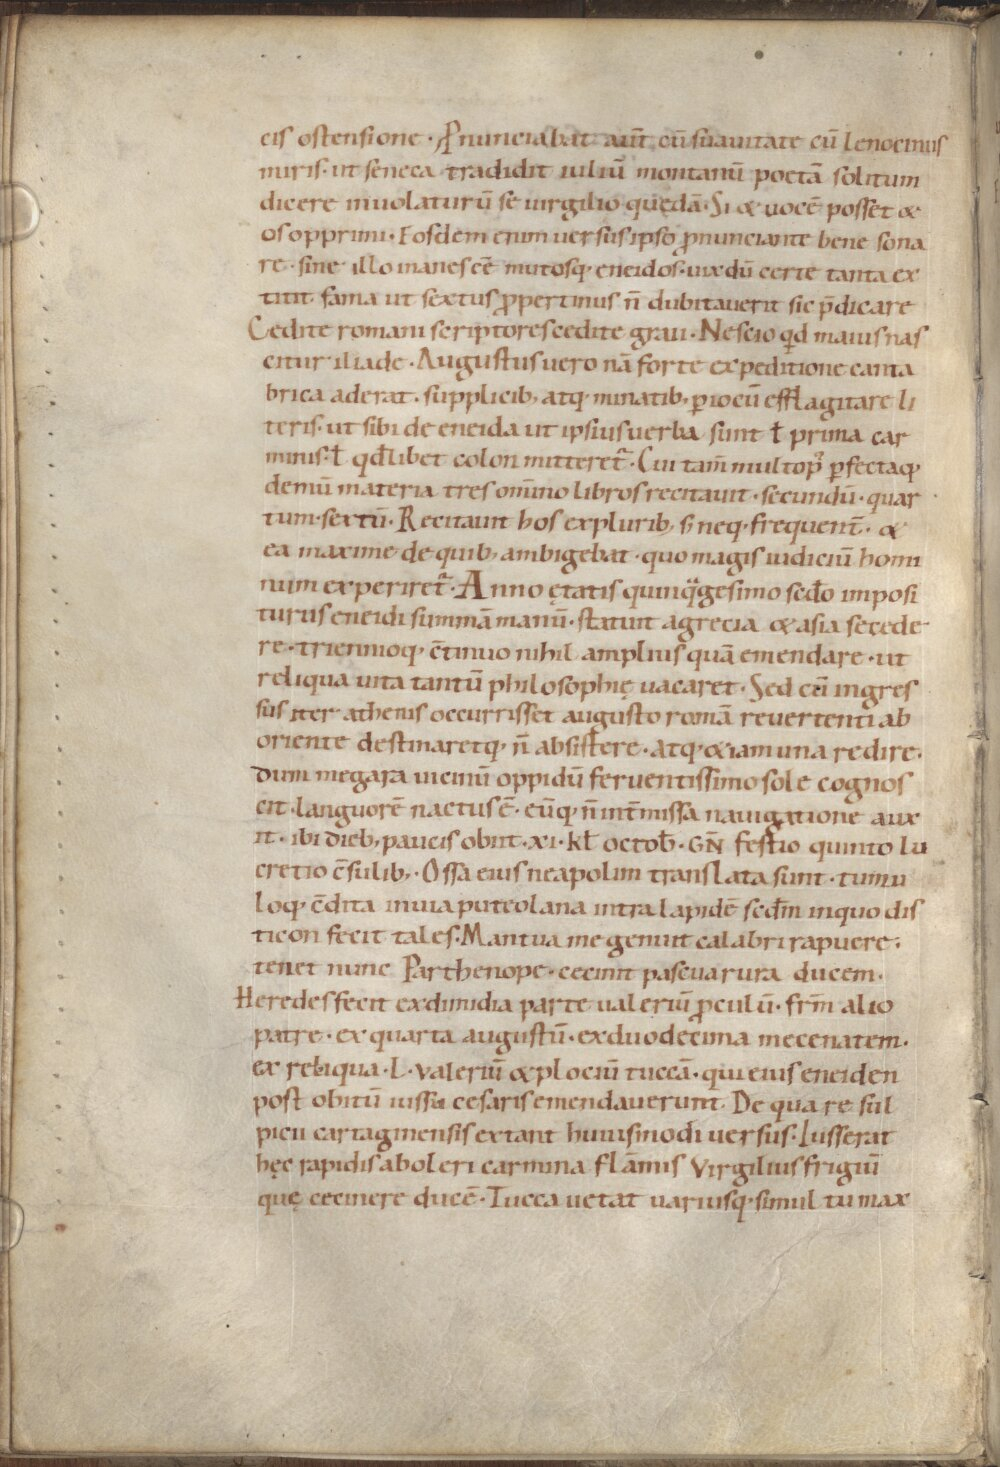 cis ostensione · Ꝓnunciabat aut̄ cū suauitate cū lenociniis
miris · ut seneca tradidit iuliū montanū poetā solitum
dicere inuolaturū se uirgilio quędā · Si & uocē posset &
os opprimi · Eosdem enim uersus ipso ꝓnunciante bene sona
re · sine illo inanes eē mutosq; eneidos · uixdū certe tanta ex
titit fama ut sextus ꝓpertinus n̄ dubitauerit sic p̄dicare
Cedite romani scriptores cedite grau · Nescio qͥd maius nas
citur iliade · Augustus uero nā forte expeditione canta
brica aderat · supplicib; atq; minatib; ꝑ iocū efflagitare li
teris · ut sibi de eneida ut ipsius uerba sunt ł prima car
minis · ł qđlibet colon mitteret᷑ · Cui tam̄ multop᷒ ꝑfectaq;
demū materia tres om̄ino libros recitauit · secundū · quar
tum · sextū · Recitauit hos & plurib; s; neq; frequent̄ · &
ea maxime de quib; ambigebat · quo magis iudiciū homi
num experiret᷑ · Anno ętatis quinqᷓgesimo sedo̅ imposi
turus eneidi summā manū · statuit agrecia & asia secede
re · triennioq; c̄tinuo nihil amplius quā emendare · ut
reliqua uita tantū philosophię uacaret · Sed cū ingres
sus iter athenis occurrisset augusto romā reuertenti ab
oriente destinaretq; n̄ absistere · atq; &iam una redire ·
dum megara uicinū oppidū feruentissimo sole cognos
cit · languorē nactus ē · eūq; n̄ int̄missa nauigatione aux
it · ibi dieb; paucis obiit · xi · kł octob̄ · GN̄ festio quinto lu
cretio c̄sulib; · Ossa eius neapolim translata sunt · tumu
loq; c̄dita in uia puteolana intra lapidē sed̄m in quo dis
ticon fecit tales · Mantua me genuit calabri rapuere ·
tenet nunc Parthenope · cecinit pascua rura ducem ·
Heredes fecit ex dimidia parte ualeriū ꝓculū · fr̄m alio
patre · ex quarta augustū · ex duodecima mecenatem ·
ex reliqua · L · valeriū & plociū tuccā · qui eius eneiden
post obitū iussu cesaris emendauerunt · De qua re sul
picii cartaginensis extant huiusmodi uersus · Iusserat
hęc rapidis aboleri carmina flāmis Virgilius frigiū
quę cecinere ducē · Tucca uetat uariusq; simul tu max